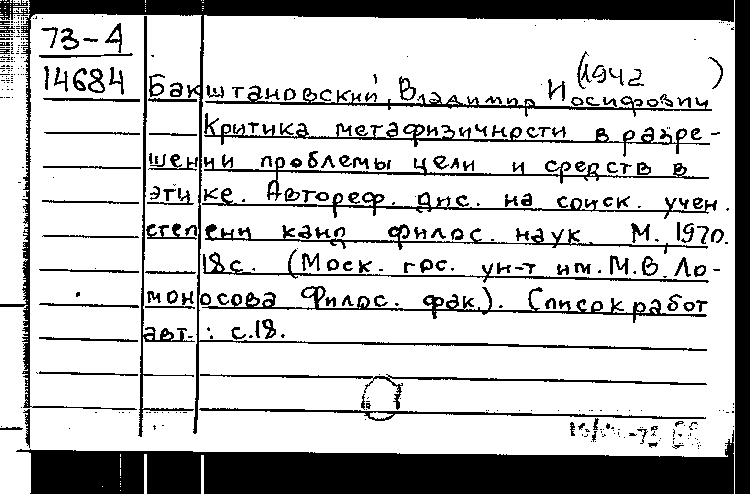 73-4
14684
(1942 )
Бакштановский, Владимир Иосифович
Критика метафизичности в разре-
шении проблемы цели и средств в
этике. Автореф. дис. на соиск. учен.
степени канд филос. наук. М., 1970.
18с. (Моск. гос. ун-т им. М.В. Ло-
моносова Филос. фак.). Список работ
авт.: с.18.